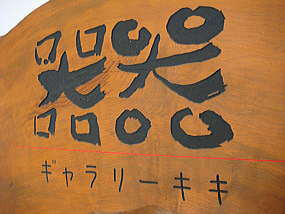 器器
ギャラリーキキ